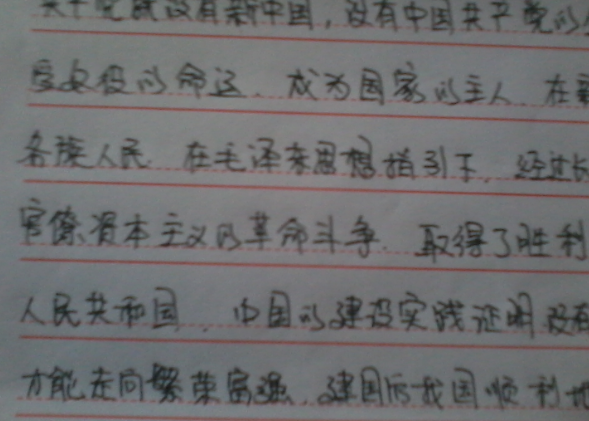 共产党就没有新中国，没有中国共产党的
受奴役的命运，成为国家的主人，在新
各族人民，在毛泽东思想指引下，经过长
官僚资本主义的革命斗争，取得了胜利
人民共和国，中国的建设实践证明没有
才能走向繁荣富强，建国后我国顺利地